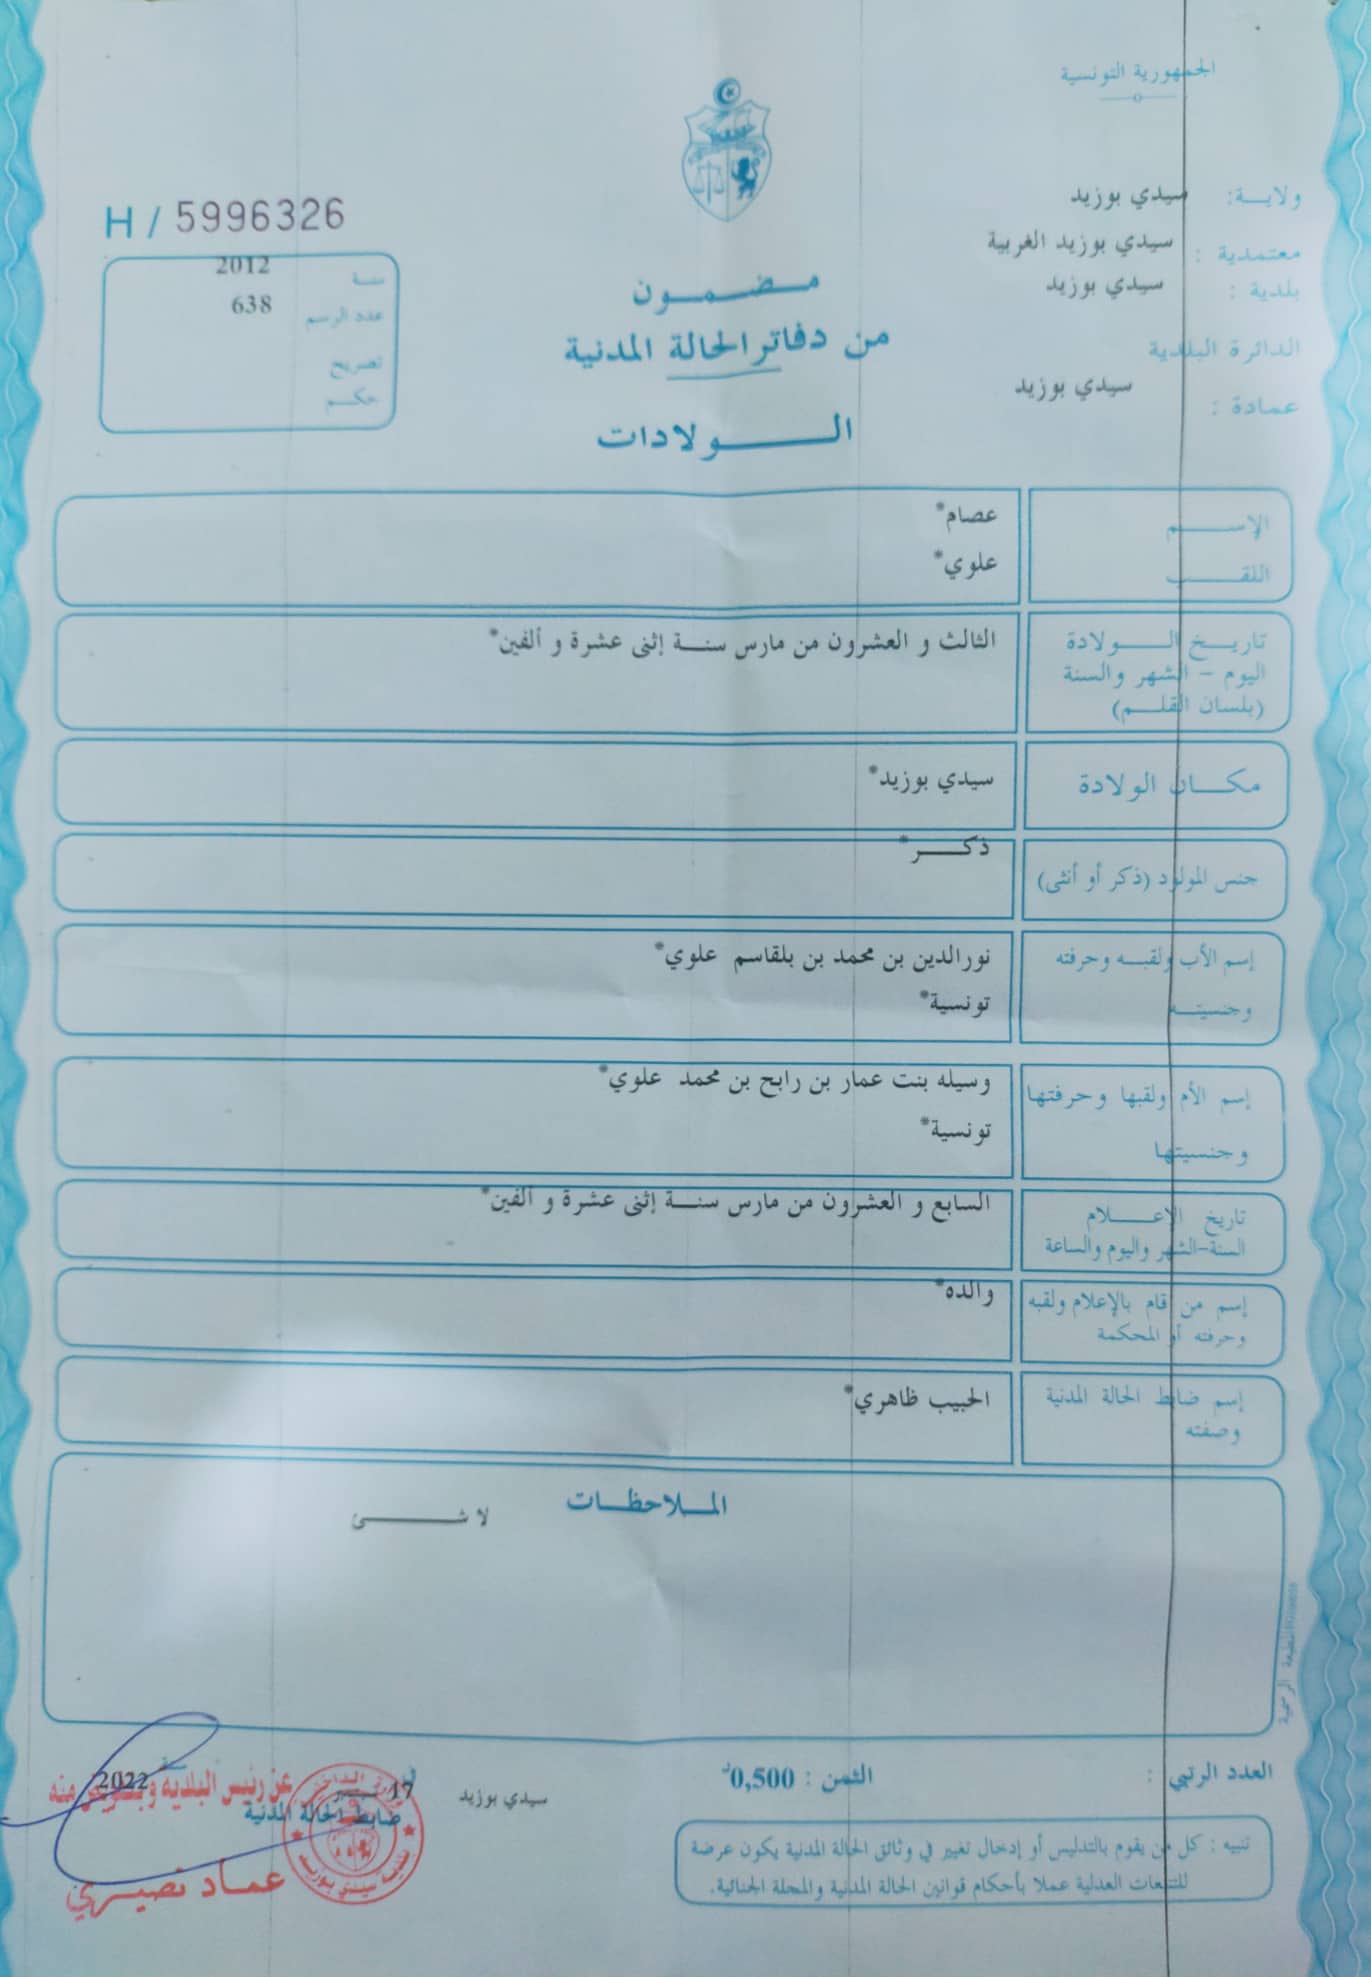 الجمهورية التونسية
ولايـــة: سيدي بوزيد
معتمدية : سيدي بوزيد الغربية
بلدية : سيدي بوزيد
الدائرة البلدية
عمادة : سيدي بوزيد
H / 5996326
سنة 2012
عدد الرسم 638
تصريح
حكـــم
مـــضـــمـــون
من دفاتر الحالة المدنية
الـــــولادات
الإســـــم عصام*
اللقـــــب علوي*
تاريـــخ الـــــولادة الثالث و العشرون من مارس سنـــة إثنى عشرة و ألفين*
اليوم - الشهر والسنة
(بلسان القلـــم)
مكـــان الولادة سيدي بوزيد*
جنس المولود (ذكر أو أنثى) ذكـــــر*
إسم الأب ولقبـــه وحرفته نورالدين بن محمد بن بلقاسم علوي*
وجنسيتـــه تونسية*
إسم الأم ولقبها وحرفتها وسيله بنت عمار بن رابح بن محمد علوي*
وجنسيتها تونسية*
تاريخ الإعـــــلام السابع و العشرون من مارس سنـــة إثنى عشرة و ألفين*
السنة-الشهر واليوم والساعة
إسم من قام بالإعلام ولقبه والده*
وحرفته أو المحكمة
إسم ضابط الحالة المدنية الحبيب ظاهري*
وصفته
المـــلاحظـــات
لا شـــــئ
المطبعة الرسمية
العدد الرتبي :
الثمن : 0,500د
سيدي بوزيد
17
2022
ضابط الحالة المدنية
عن رئيس البلدية وبتفويض منه
عمـاد نصيـــري
بلدية سيدي بوزيد
تنبيه : كل من يقوم بالتدليس أو إدخال تغيير في وثائق الحالة المدنية يكون عرضة
للتتبعات العدلية عملا بأحكام قوانين الحالة المدنية والمجلة الجنائية.